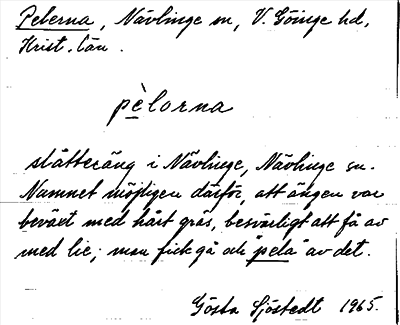 Pelerna, Nävlinge sn, V. Göinge hd,
Krist. län.
pèlorna
slåtteräng i Nävlinge, Nävlinge sn.
Namnet möjligen därför, att ängen var
beväxt med hårt gräs, besvärligt att få av
med lie; man fick gå och "pela" av det.
Gösta Sjöstedt 1965.